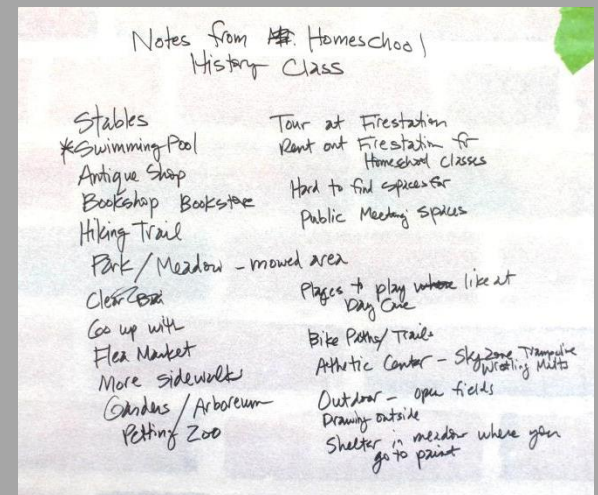 Notes from Homeschool
History Class
Stables
*Swimming Pool
Antique Shop
Bookshop Bookstore
Hiking Trail
Park / Meadow - mowed area
Clear
Co up with
Flea Market
More sidewalks
Gardens / Arboreum
Petting Zoo
Tour at Firestation
Rent out Firestation for
Homeschool classes
Hard to find spaces for
Public Meeting spaces
Places to play where like at
Day Care
Bike Paths/Trails
Athletic Center - Sky Zone Trampoline
Wrestling Matts
Outdoor - open fields
Drawing outside
Shelter in meadow where you
go to paint